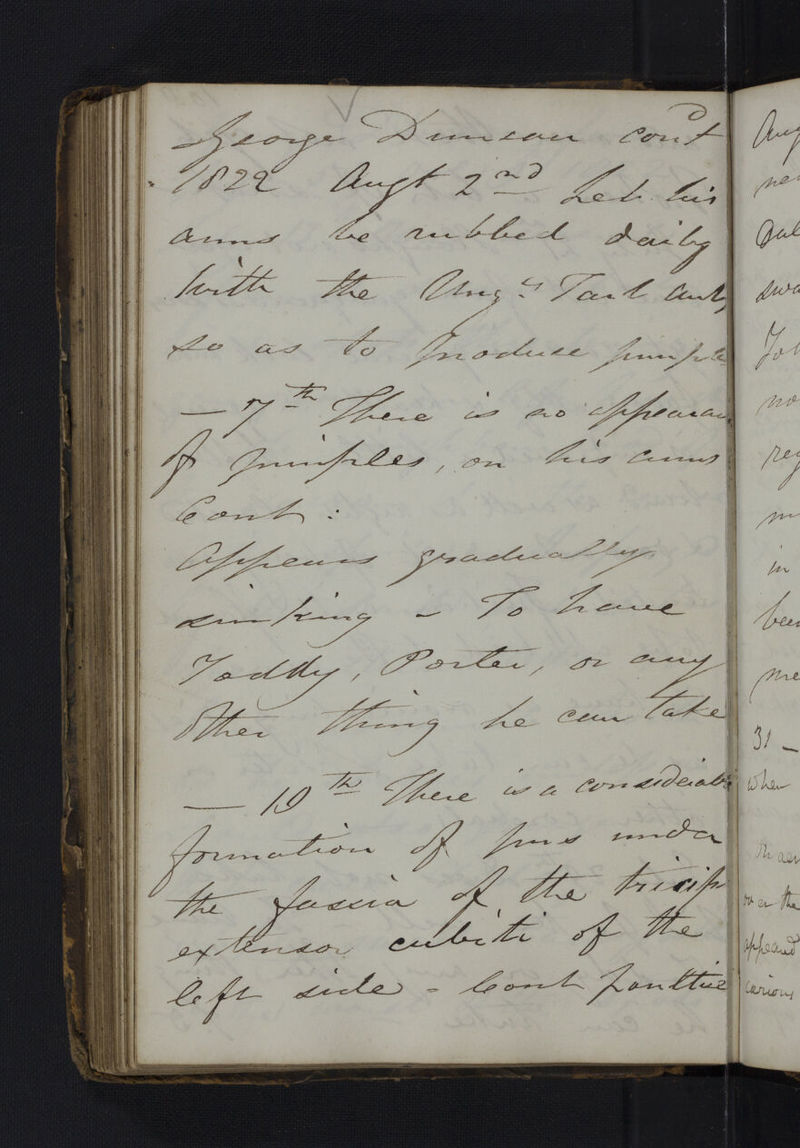 George Duncan cont^d
1822 Augt 2^nd Let his
arms be rubbed daily
with the Ung^t Tart Ant,
so as to produce pimple
— 7^th There is no appearan
of pimples, on his arms
Cont:
Appears gradually
sinking - To have
Toddy, Porter, or any
other thing he can take
— 10^th There is a considerable
formation of pus under
the fascia of the tricip
extensor cubiti of the
left side - Cont Poultice
31 —
when
over the
appeared
carious